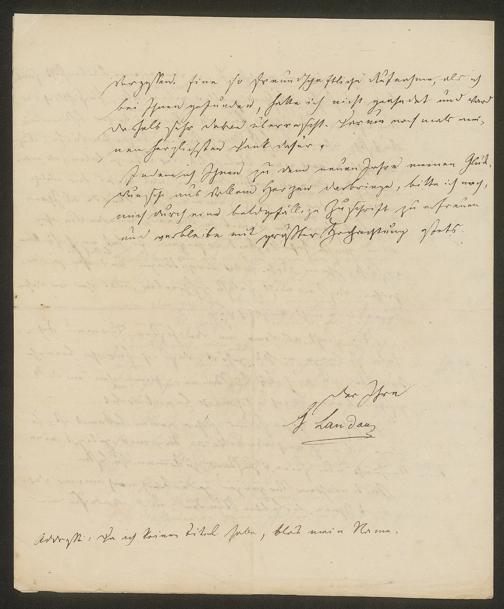 vergessen. Eine so freundschaftliche Aufnahme, als ich
bei Ihnen gefunden, hatte ich nicht geahndet und ward
deshalb sehr davon überrascht. Darum nochmals mei-
nen herzlichsten Dank dafür.
Indem ich Ihnen zu dem neuen Jahre meinen Glück-
wunsch aus vollem Herzen darbringe, bitte ich noch,
mich durch eine baldgefällige Zuschrift zu erfreuen
und verbleibe mit größter Hochachtung stets
der Ihre
Landau
Addresse: Da ich keinen Titel habe, blos mein Name.